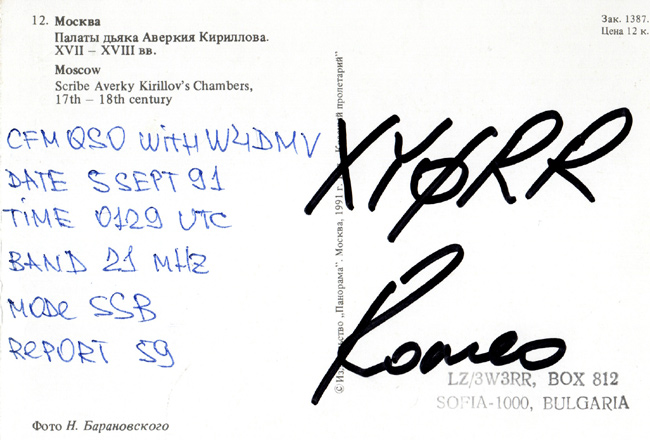 12. Москва
Палаты дьяка Аверкия Кириллова.
XVII – XVIII вв.
Moscow
Scribe Averky Kirillov's Chambers,
17th – 18th century
Зак. 1387.
Цена 12 к.
CFM QSO WITH W4DMV
DATE 5 SEPT 91
TIME 0129 UTC
BAND 21 MHZ
MODE SSB
REPORT 59
XYØRR
Romeo
© Издательство „Панорама“. Москва, 1991 г. пролетарий"
LZ/3W3RR, BOX 812
SOFIA-1000, BULGARIA
Фото Н. Барановского